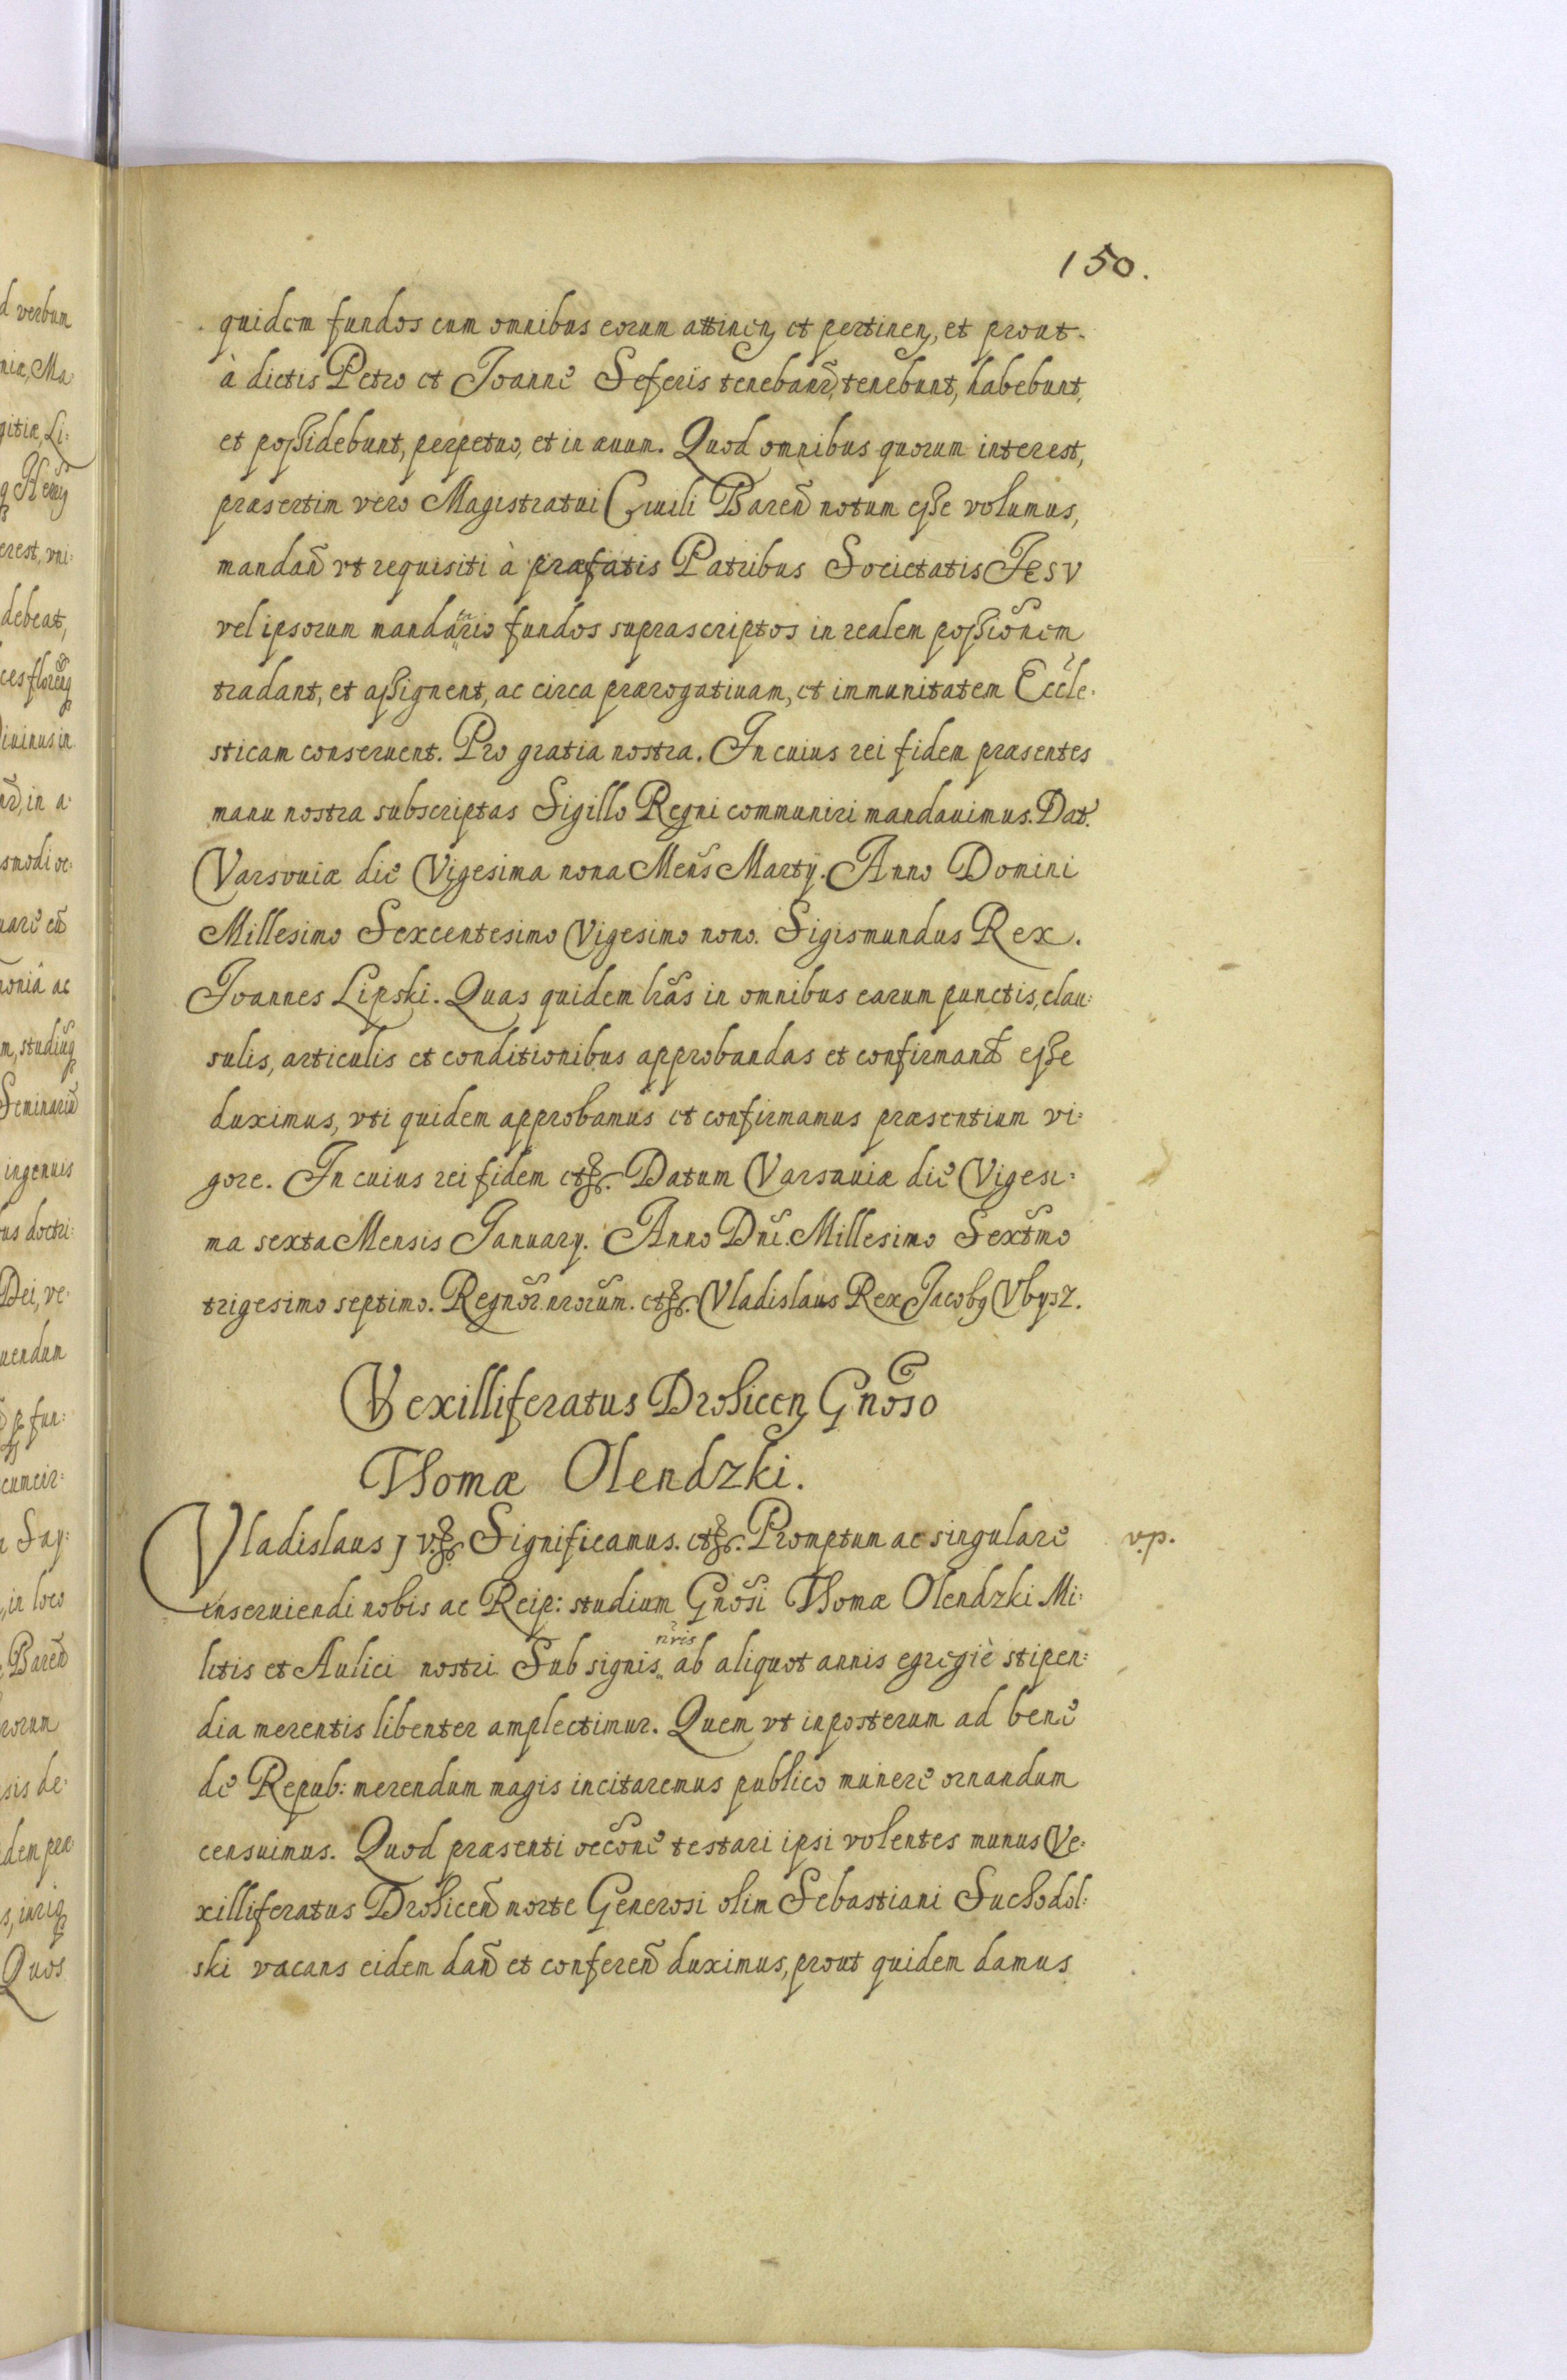 150.
quidem fundos cum omnibus eorum attineñ et pertineñ, et prout
à dictis Petro et Joanne Seferis tenebanr̃, tenebunt, habebunt,
et possidebunt, perpetuo, et in æuum. Quod omnibus quorum interest,
præsertim vero Magistratui Ciuili Bareñ notum esse volumus,
mandañ vt requisiti à præfatis Patribus Societatis Jesv
vel ipsorum mandãrio fundos suprascriptos in realem possiõnem
tradant, et assignent, ac circa prærogatiuam, et immunitatem Eccle:
sticam conseruent. Pro gratia nostra. In cuius rei fidem præsentes
manu nostra subscriptas Sigillo Regni communiri mandauimus. Dat.
Varsouiæ die Vigesima nona Mens̃ Martÿ. Anno Domini
Millesimo Sexcentesimo Vigesimo nono. Sigismundus Rex.
Joannes Lipski. Quas quidem lrãs in omnibus earum punctis, clau:
sulis, articulis et conditionibus approbandas et confirmand̃ esse
duximus, vti quidem approbamus et confirmamus præsentium vi:
gore. In cuius rei fidem etc̃. Datum Varsauiæ die Vigesi:
ma sexta Mensis January. Anno Dnĩ. Millesimo Sextm̃o
trigesimo septimo. Regnõr. nrorũm. etc̃. Vladislaus Rex Jacobꝯ Vbysz.
Vexilliferatus Drohiceñ Gnõso
Thomæ Olendzki.
Vladislaus jv. etc̃ Significamus. etc̃. Promptum ac singulare v.p.
inseruiendi nobis ac Reip: studium Gnõsi Thomæ Olendzki Mi:
litis et Aulici nostri Sub signis nr̃is ab aliquot annis egregiè stipen:
dia merentis libenter amplectimur. Quem vt inposterum ad bene
de Repub: merendum magis incitaremus publico munere ornandum
censuimus. Quod præsenti occõne testari ipsi volentes munus Ve:
xilliferatus Drohiceñ morte Generosi olim Sebastiani Suchodol:
ski vacans eidem dañ et confereñ duximus, prout quidem damus